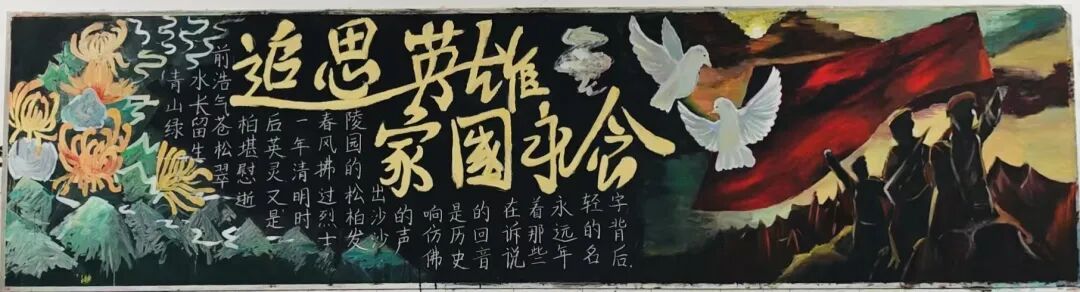 追思英雄
家國永念
青山绿
水长留生
前浩气苍松翠
柏堪慰逝
后英灵又是
一年清明时
春风拂过烈士
陵园的松柏发
出沙沙
的声
响仿佛
是历史
的回音
在诉说
着那些
永远年
轻的名
字背后